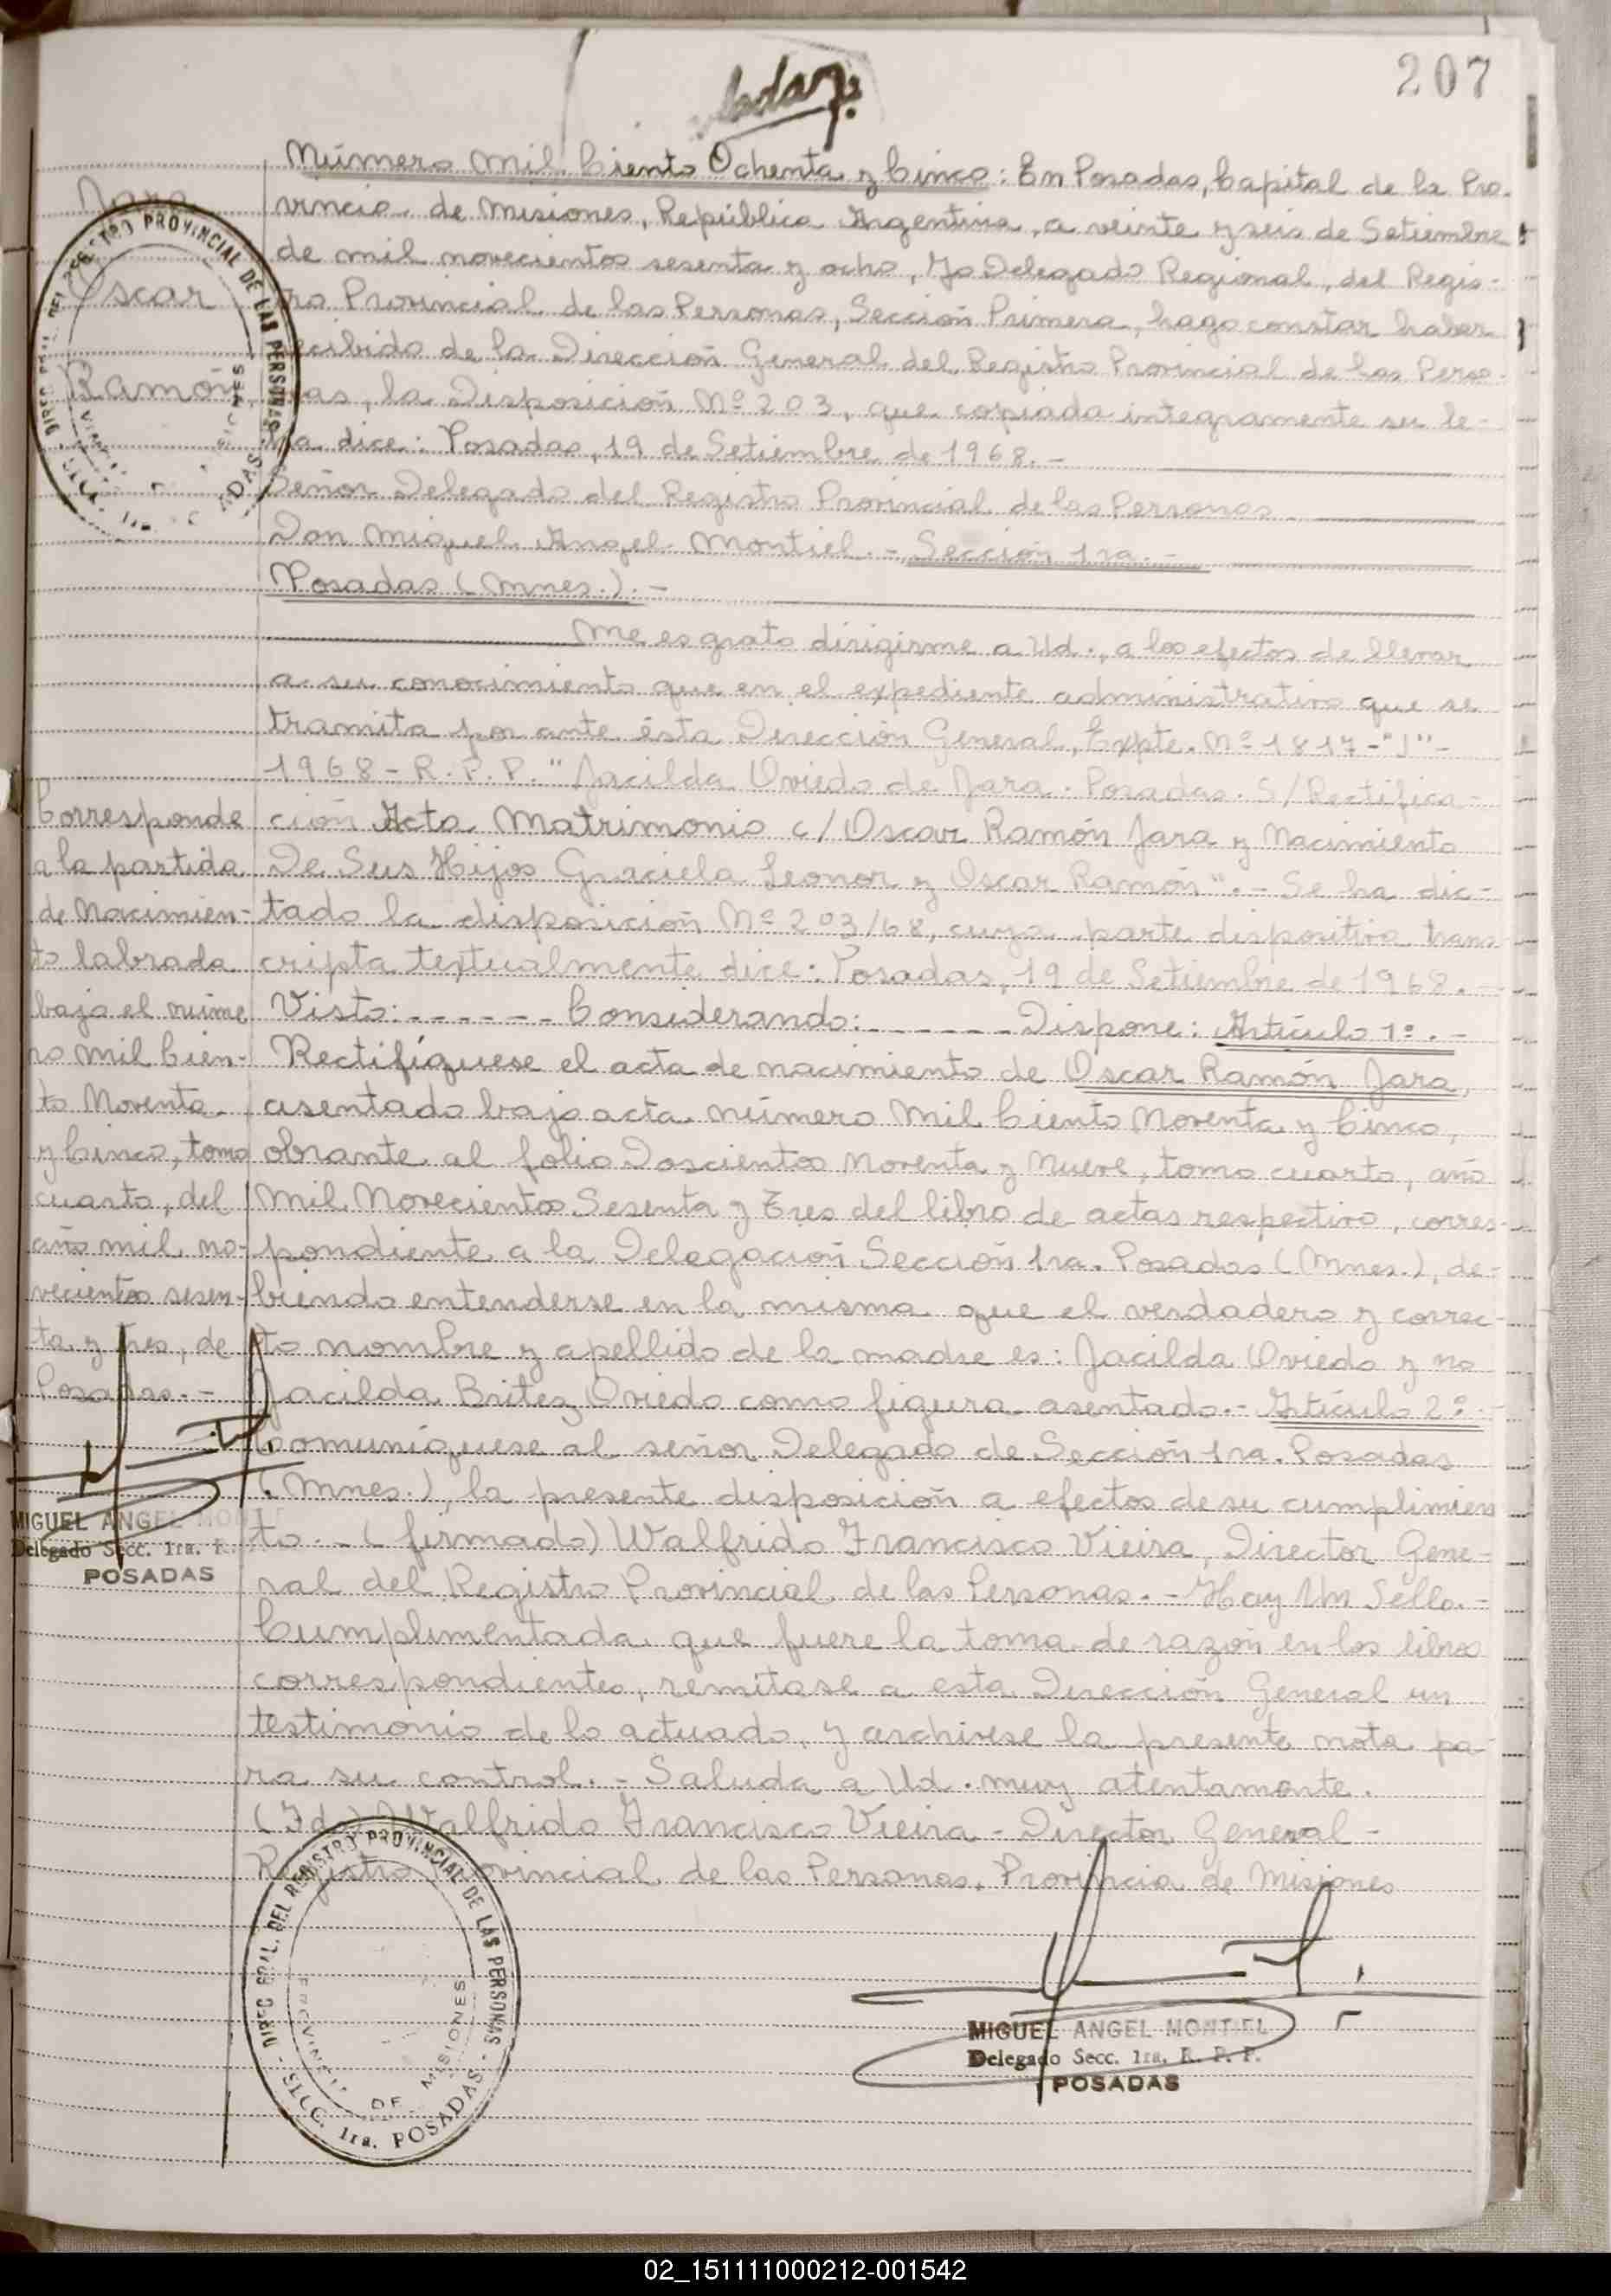 207
Número Mil Ciento Ochenta y Cinco: En Posadas, Capital de la Pro-
vincia de Misiones, República Argentina, a veinte y seis de Setiembre
de mil novecientos sesenta y ocho, Yo Delegado Regional, del Regis-
tro Provincial de las Personas, Sección Primera, hago constar haber
recibido de la Dirección General del Registro Provincial de las Perso-
nas, la Disposición Nº 203, que copiada integramente su le-
tra dice: Posadas, 19 de Setiembre de 1968.-
Señor Delegado del Registro Provincial de las Personas
Don Miguel Angel Montiel.- Sección 1ra.-
Posadas (Mnes.).-
Me es grato dirigirme a Ud., a los efectos de llevar
a su conocimiento que en el expediente administrativo que se
tramita por ante ésta Dirección General, Expte. Nº 1817-"J"-
1968-R.P.P. "Jacilda Oviedo de Jara. Posadas. S/Rectifica-
ción Acta Matrimonio c/Oscar Ramón Jara y Nacimiento
De Sus Hijos Graciela Leonor y Oscar Ramón".- Se ha dic-
tado la disposición Nº 203/68, cuya parte dispositiva trans
cripta textualmente dice: Posadas, 19 de Setiembre de 1968.-
Visto:------- Considerando:------ Dispone: Artículo 1º.-
Rectifíquese el acta de nacimiento de Oscar Ramón Jara,
asentado bajo acta número Mil Ciento Noventa y Cinco,
obrante al folio Doscientos Noventa y Nueve, tomo cuarto, año
Mil Novecientos Sesenta y Tres del libro de actas respectivo, corres-
pondiente a la Delegación Sección 1ra. Posadas (Mnes.), de-
biendo entenderse en la misma que el verdadero y correc-
to nombre y apellido de la madre es: Jacilda Oviedo y no
Jacilda Britez Oviedo como figura asentado.- Artículo 2º.-
Comuníquese al señor Delegado de Sección 1ra. Posadas
(Mnes.), la presente disposición a efectos de su cumplimien
to.- (firmado) Walfrido Francisco Vieira, Director Gene-
ral del Registro Provincial de las Personas.- Hay Un Sello.-
Cumplimentada que fuere la toma de razón en los libros
correspondientes, remítase a esta Dirección General un
testimonio de lo actuado, y archivese la presente nota pa-
ra su control.- Saluda a Ud. muy atentamente.
(Fdo) Walfrido Francisco Vieira - Director General -
Registro Provincial de las Personas, Provincia de Misiones
Jara
Oscar
Ramón
Corresponde
a la partida
de Nacimien-
to labrada
bajo el núme
ro Mil Cien-
to Noventa
y Cinco, tomo
cuarto, del
año mil no-
vecientos sesen-
ta y tres, de
Posadas.-
MIGUEL ANGEL MONTIEL
Delegado Secc. 1ra.
POSADAS
DIREC GRAL. DEL REGISTRO PROVINCIAL DE LAS PERSONAS
PROVINCIA DE MISIONES
SECC. 1ra. POSADAS
MIGUEL ANGEL MONTIEL
Delegado Secc. 1ra. R. P. P.
POSADAS
02_151111000212-001542